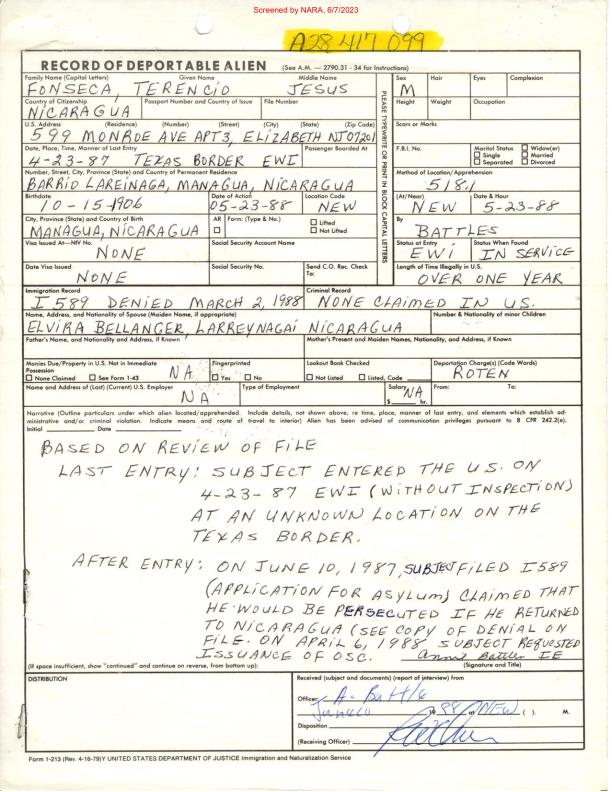 Screened by NARA, 6/7/2023
A28 417 099
RECORD OF DEPORTABLE ALIEN (See A.M. — 2790.31 - 34 for Instructions)
Family Name (Capital Letters) Given Name Middle Name
FONSECA, TERENCIO JESUS
Sex Hair Eyes Complexion
M
Country of Citizenship Passport Number and Country of Issue File Number
NICARAGUA
Height Weight Occupation
U.S. Address (Residence) (Number) (Street) (City) (State) (Zip Code)
599 MONROE AVE APT 3, ELIZABETH NJ 07201
Scars or Marks
Date, Place, Time, Manner of Last Entry Passenger Boarded At
4-23-87 TEXAS BORDER EWI
F.B.I. No. Marital Status
Single Widow(er) Married
Separated Divorced
Number, Street, City, Province (State) and Country of Permanent Residence
BARRIO LAREINAGA, MANAGUA, NICARAGUA
Method of Location/Apprehension
518.1
Birthdate Date of Action Location Code
10-15-1906 05-23-88 NEW
(At/Near) Date & Hour
NEW 5-23-88
City, Province (State) and Country of Birth AR Form: (Type & No.) Lifted
Not Lifted
MANAGUA, NICARAGUA
By
BATTLES
Visa Issued At—NIV No. Social Security Account Name
NONE
Status at Entry Status When Found
EWI IN SERVICE
Date Visa Issued Social Security No. Send C.O. Rec. Check To:
NONE
Length of Time Illegally in U.S.
OVER ONE YEAR
PLEASE TYPEWRITE OR PRINT IN BLOCK CAPITAL LETTERS
Immigration Record Criminal Record
I589 DENIED MARCH 2, 1988 NONE CLAIMED IN US.
Name, Address, and Nationality of Spouse (Maiden Name, if appropriate) Number & Nationality of minor Children
ELVIRA BELLANGER, LARREYNAGA NICARAGUA
Father's Name, and Nationality and Address, if Known Mother's Present and Maiden Names, Nationality, and Address, if Known
Monies Due/Property in U.S. Not in Immediate Possession Fingerprinted Lookout Book Checked Deportation Charge(s) (Code Words)
None Claimed See Form 1-43 NA Yes No Not Listed Listed, Code ROTEN
Name and Address of (Last) (Current) U.S. Employer Type of Employment Salary From: To:
NA NA
$ hr.
Narrative (Outline particulars under which alien located/apprehended. Include details, not shown above, re time, place, manner of last entry, and elements which establish administrative and/or criminal violation. Indicate means and route of travel to interior) Alien has been advised of communication privileges pursuant to 8 CFR 242.2(e).
Initial Date
BASED ON REVIEW OF FILE
LAST ENTRY: SUBJECT ENTERED THE U.S. ON
4-23-87 EWI (WITHOUT INSPECTION)
AT AN UNKNOWN LOCATION ON THE
TEXAS BORDER.
AFTER ENTRY: ON JUNE 10, 1987, SUBJECT FILED I589
(APPLICATION FOR ASYLUM) CLAIMED THAT
HE WOULD BE PERSECUTED IF HE RETURNED
TO NICARAGUA (SEE COPY OF DENIAL ON
FILE. ON APRIL 6, 1988 SUBJECT REQUESTED
ISSUANCE OF OSC.
(If space insufficient, show "continued" and continue on reverse, from bottom up): (Signature and Title)
DISTRIBUTION
Received (subject and documents) (report of interview) from
Officer:
19 88 at NEW ( ). M.
Disposition
(Receiving Officer)
Form 1-213 (Rev. 4-16-79)Y UNITED STATES DEPARTMENT OF JUSTICE Immigration and Naturalization Service